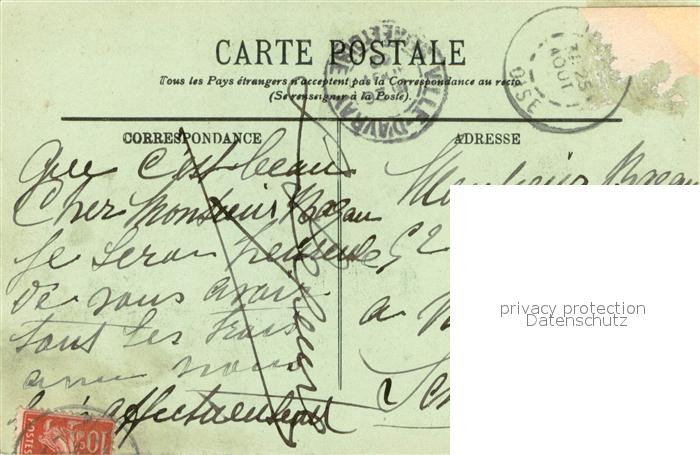 CARTE POSTALE
Tous les Pays étrangers n'acceptent pas la Correspondance au recto
(Se renseigner à la Poste).
CORRESPONDANCE
ADRESSE
Que c'est beau
Cher Monsieur
Je serai heureuse
de vous avoir
tous les trois
avec nous
affectueusement
Monsieur
52
a
privacy protection
Datenschutz
VILLE-D'AVRAY
25
AOUT
OISE
10
POSTES